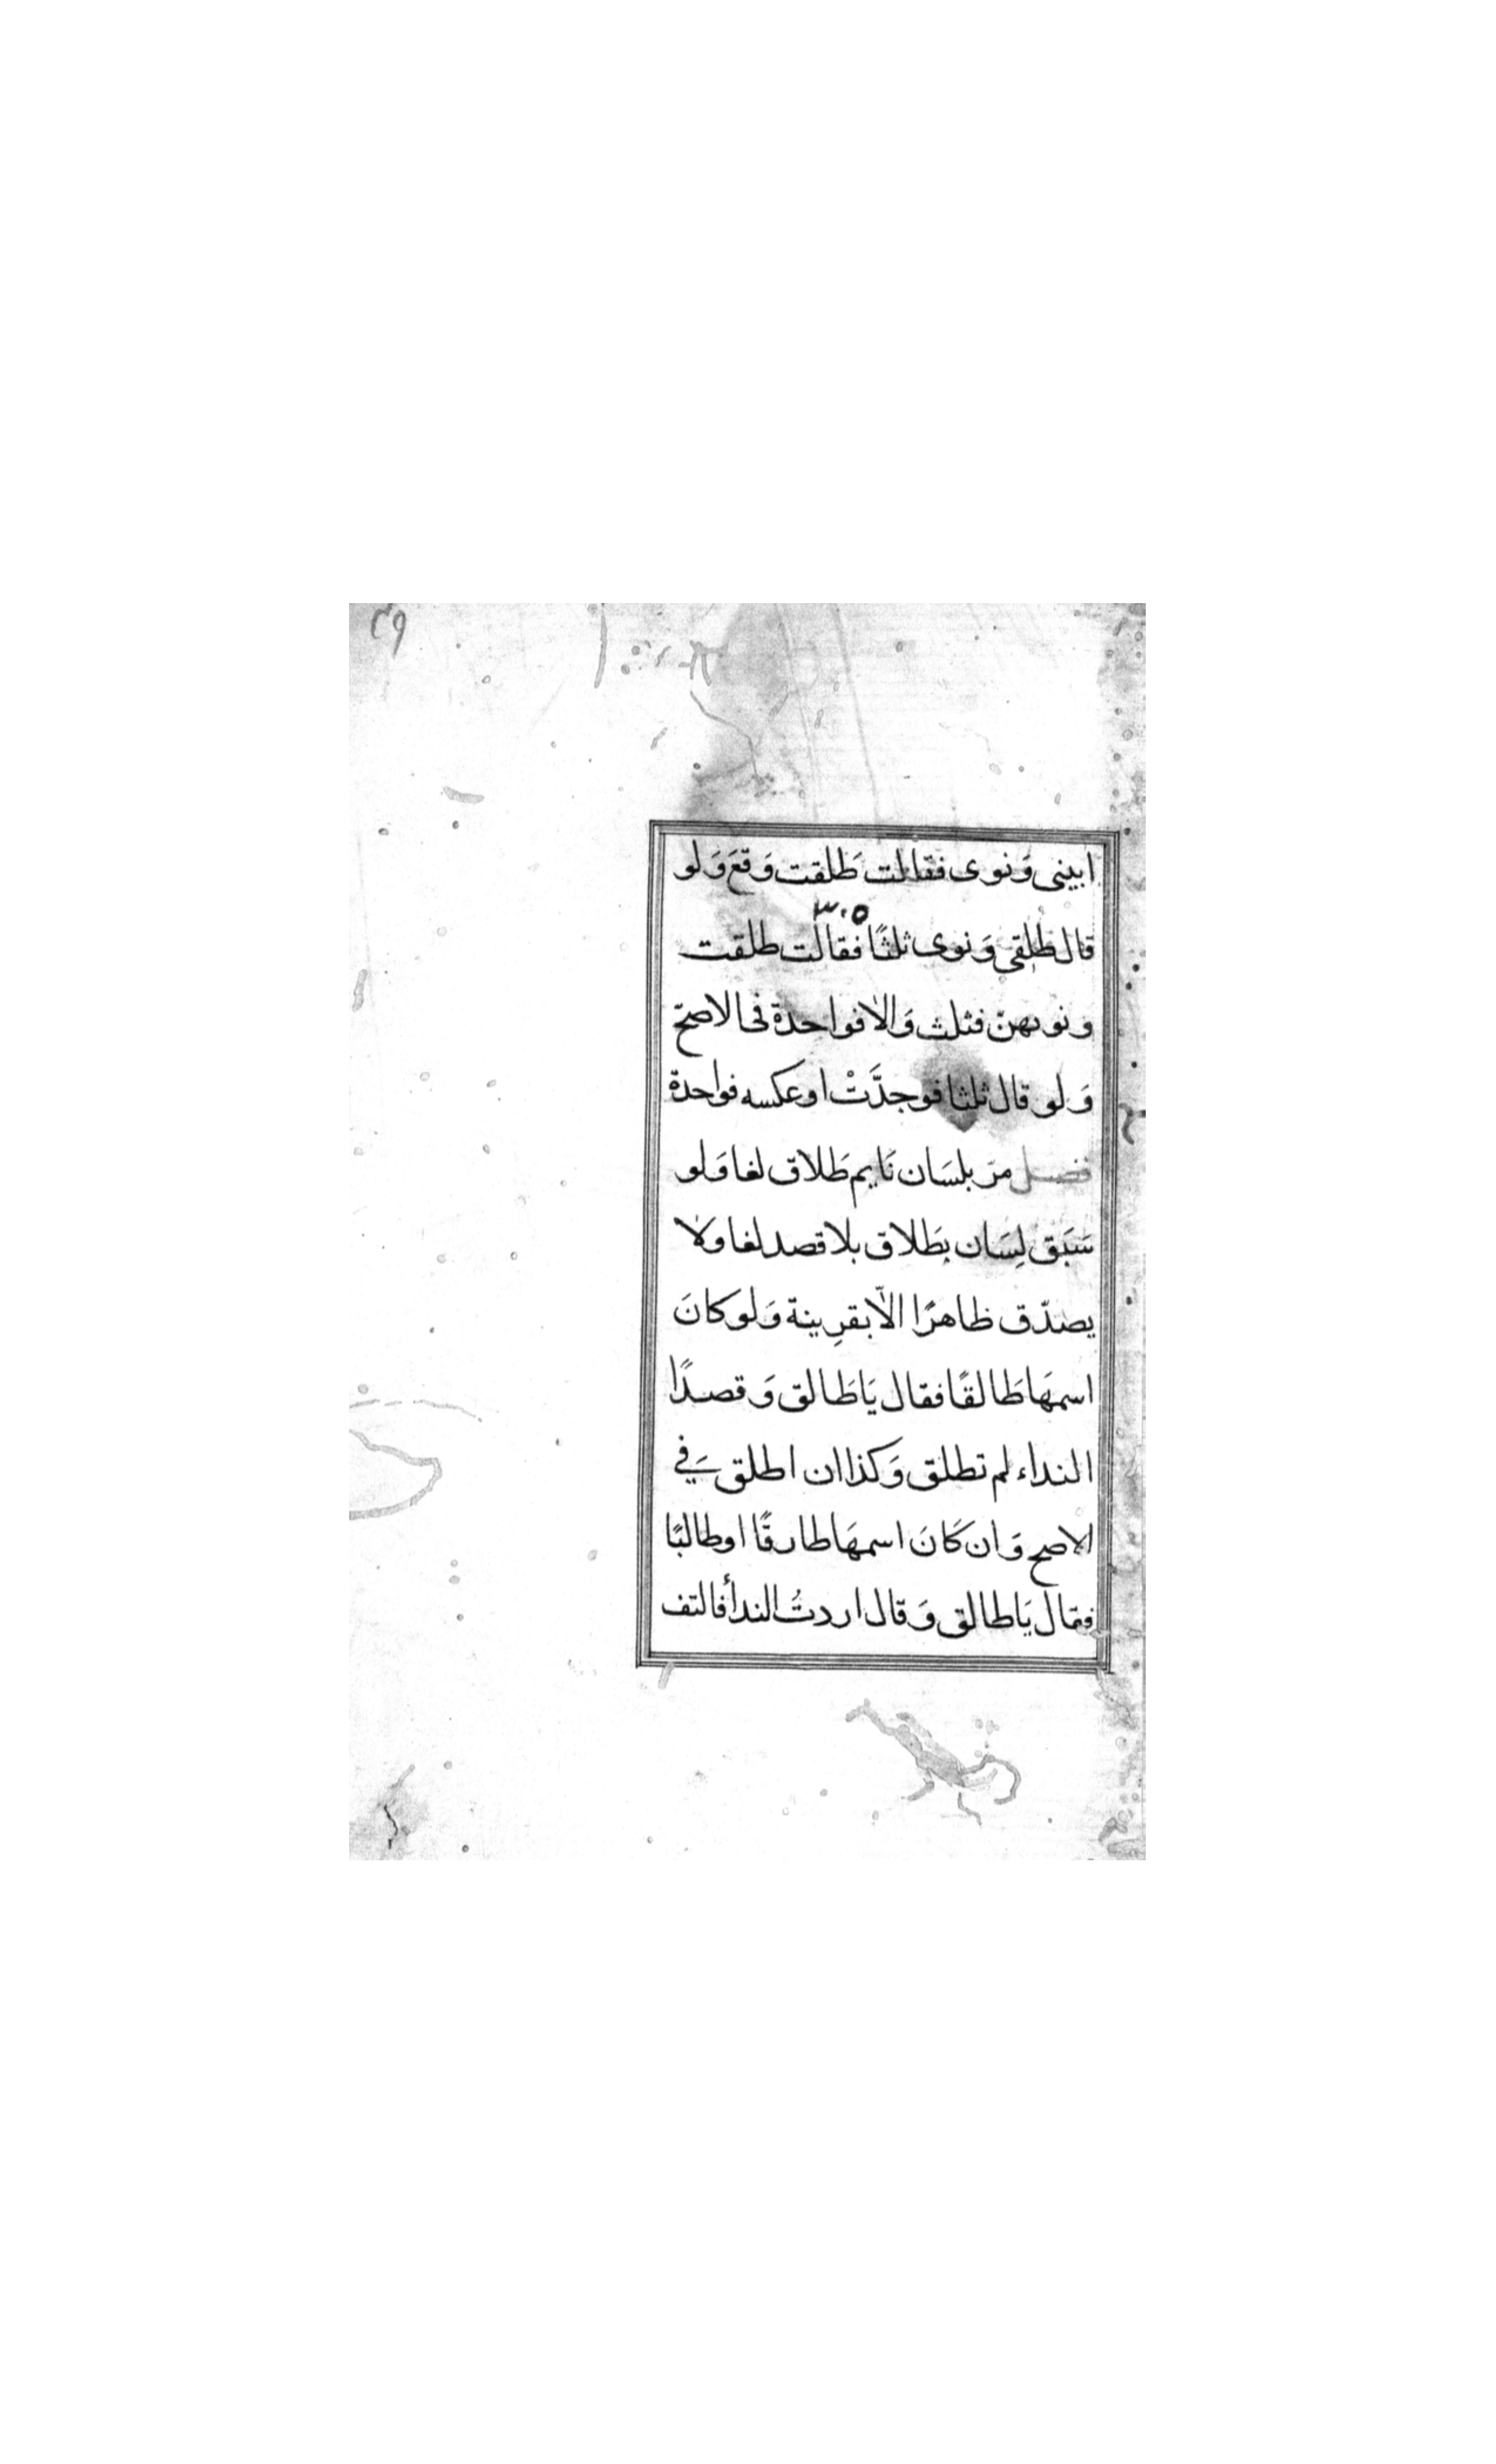 ٢٩
ابينى وَنوى فقالت طَلقت وَقعَ وَلو
٣٠٥
قال طلقى وَنوى ثلثًا فقالت طلقت
ونوىهنّ فثلث وَالا فواحدة فى الاصحّ
وَلو قال ثلثا فوحدَّتْ او عكسه فواحدة
فصل مرّ بلسَان نَايم طَلاق لغا وَلو
سَبَق لِسَان بطَلاق بلا قصد لغا ولا
يصدّق ظاهرًا الّا بقرِينة وَلو كانَ
اسمهَا طَالقًا فقال يَا طَالق وَقصدًا
النداء لم تطلق وَكذا ان اطلق فَي
الاصح وَان كَانَ اسمهَا طارقًا او طالبًا
فقال يَا طالق وَقال اردتُ الندأ فالتف